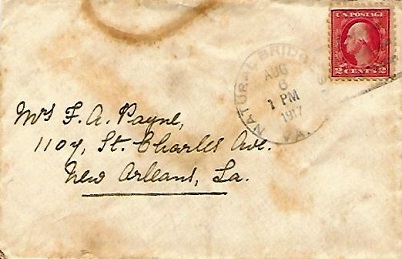 U.S. POSTAGE
2 CENTS 2
NATURAL BRIDGE
AUG
6
1 PM
1917
VA.
Mrs F. A. Payne,
1104, St. Charles Ave.
New Orleans, La.